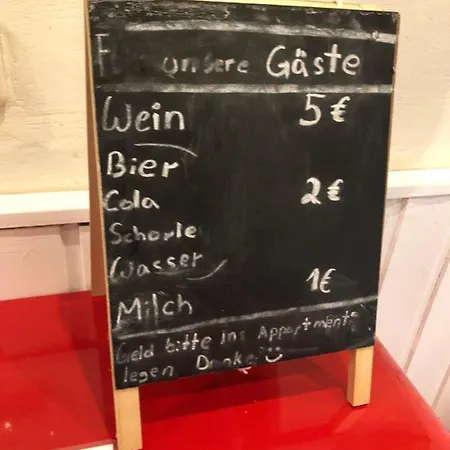 Für unsere Gäste
Wein 5 €
Bier
Cola 2 €
Schorle
Wasser
Milch 1 €
Geld bitte ins Appartment
legen Danke